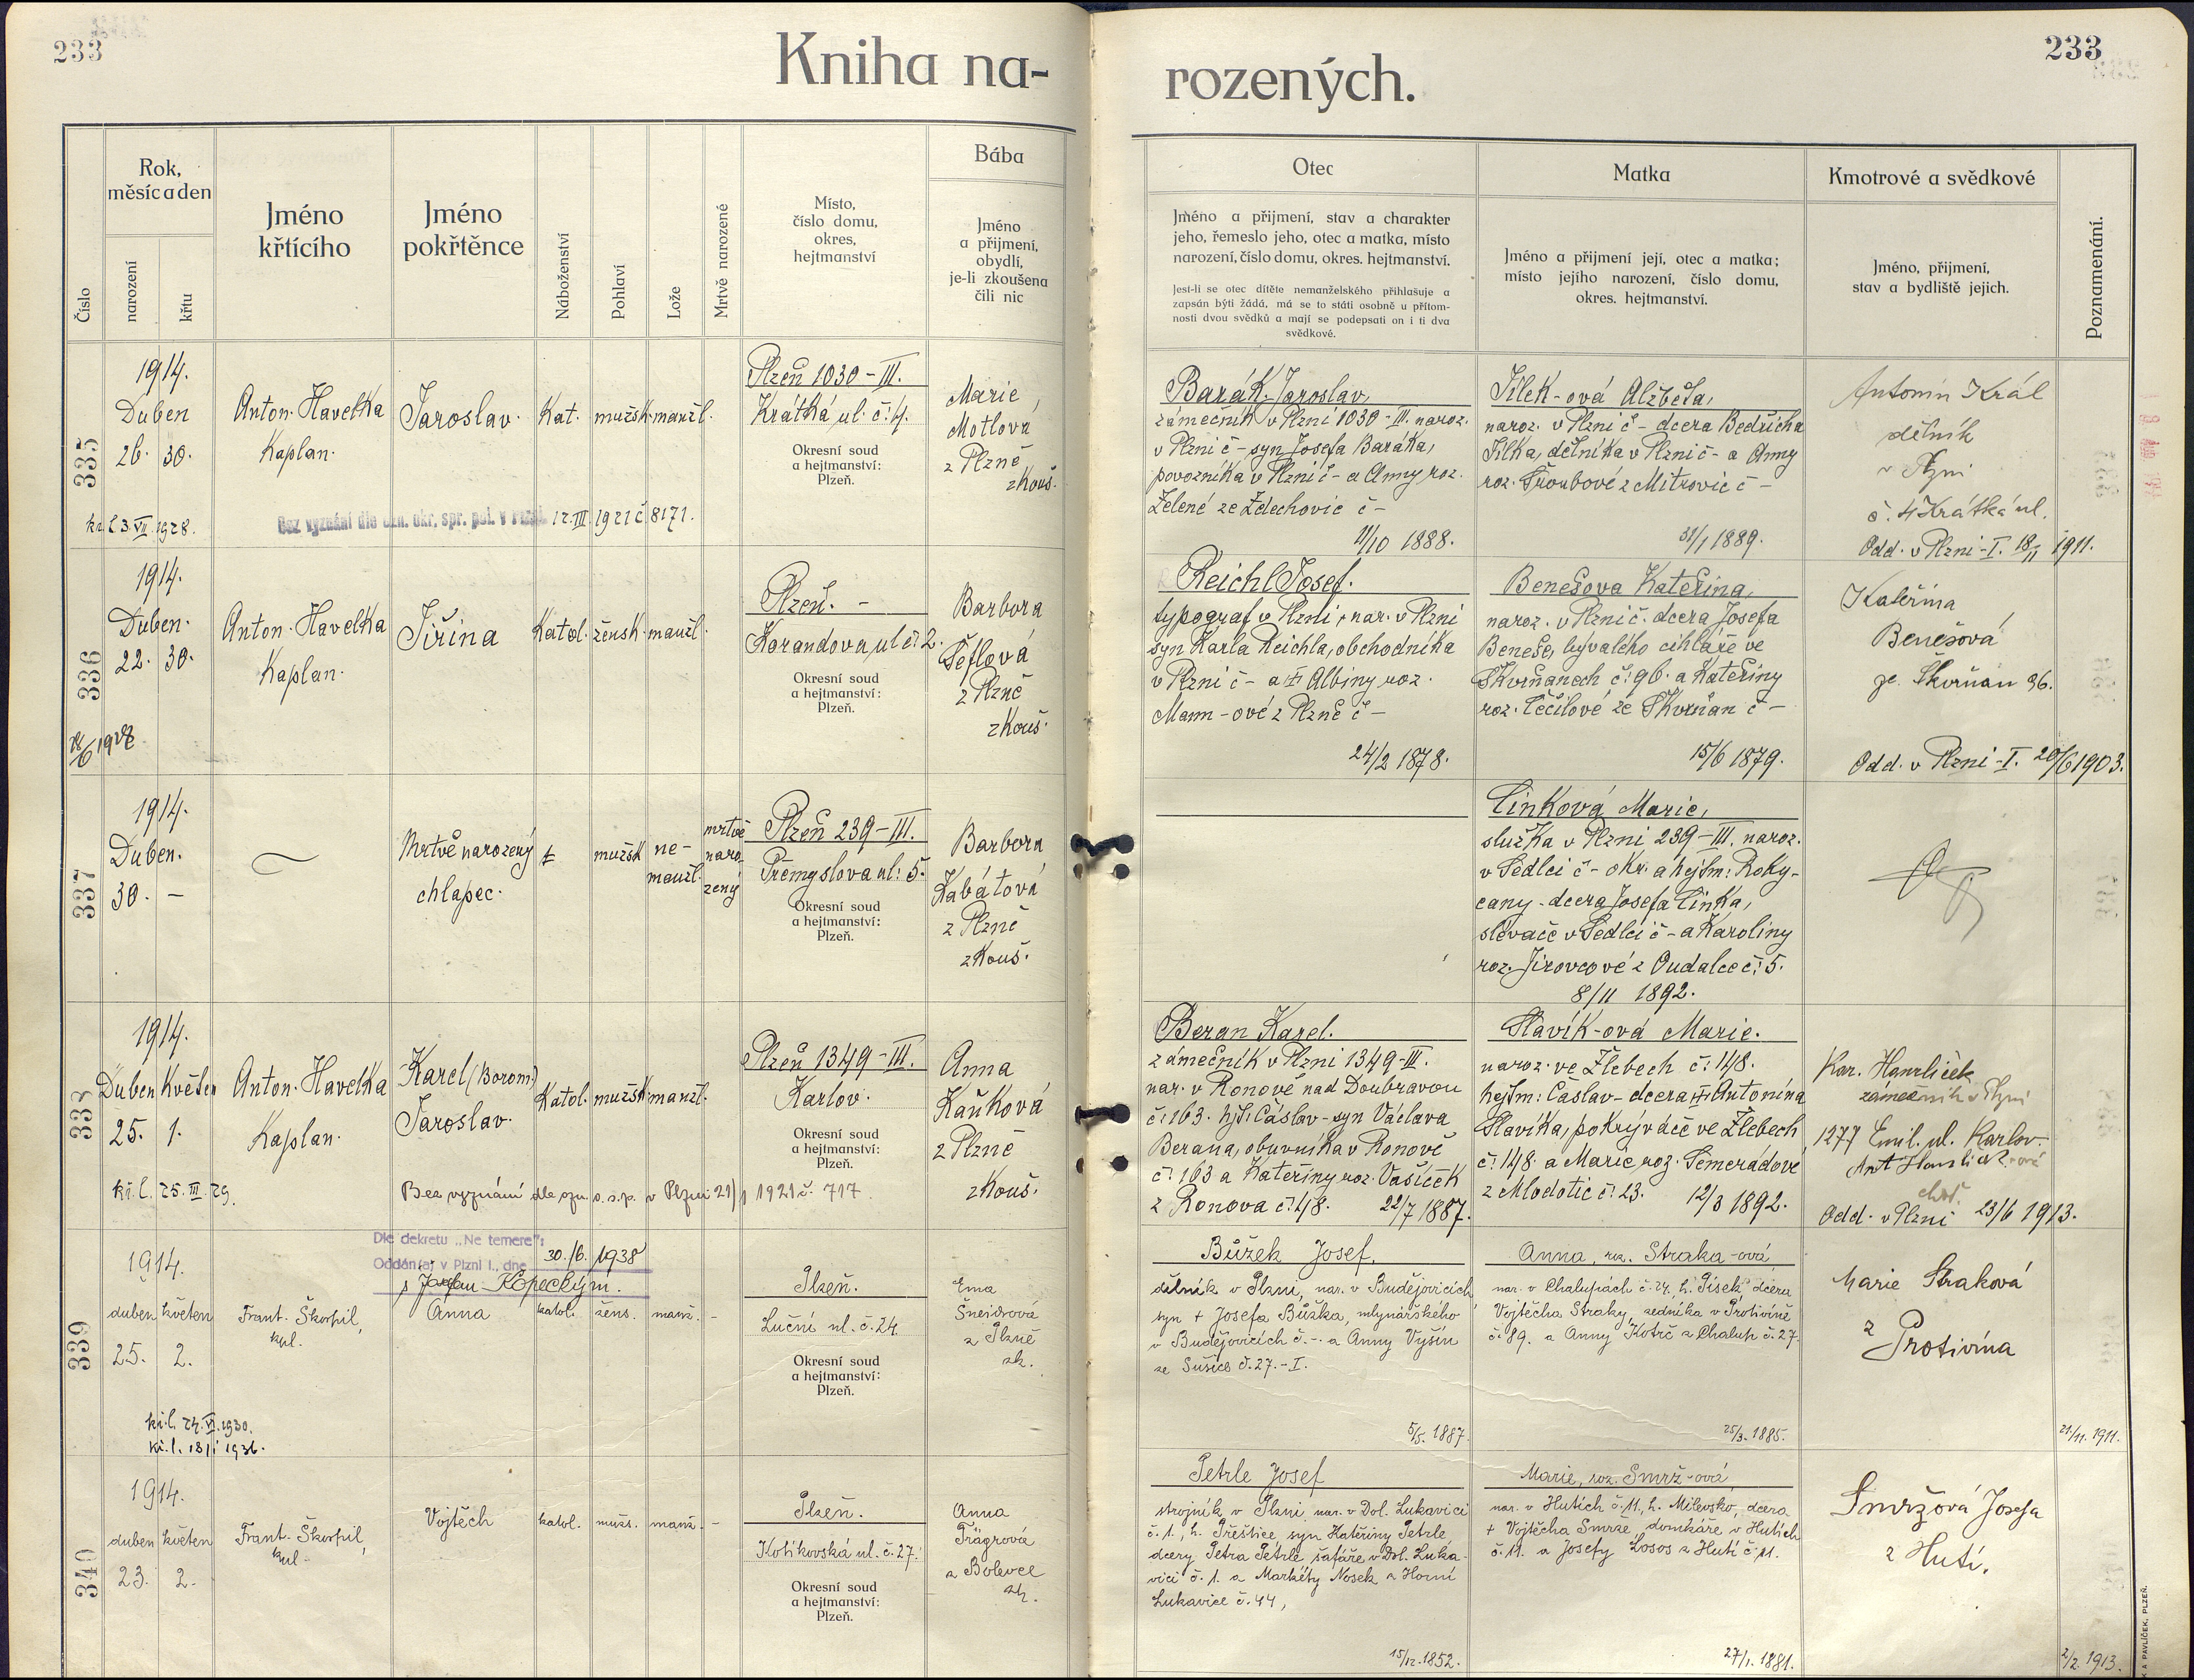 233
Kniha na-
rozených.
233
Číslo
Rok,
měsíc a den
narození
křtu
Jméno
křtícího
Jméno
pokřtěnce
Náboženství
Pohlaví
Lože
Mrtvě narozené
Místo,
číslo domu,
okres,
hejtmanství
Bába
Jméno
a přijmení,
obydlí,
je-li zkoušena
čili nic
Otec
Jméno a přijmení, stav a charakter
jeho, řemeslo jeho, otec a matka, místo
narození, číslo domu, okres. hejtmanství.
Jest-li se otec dítěte nemanželského přihlašuje a
zapsán býti žádá, má se to státi osobně u přítom-
nosti dvou svědků a mají se podepsati on i ti dva
svědkové.
Matka
Jméno a přijmení její, otec a matka;
místo jejího narození, číslo domu,
okres. hejtmanství.
Kmotrové a svědkové
Jméno, přijmení,
stav a bydliště jejich.
Poznamenání.
335
1914.
Duben
26. 30.
Anton. Havelka
Kaplan.
Jaroslav.
Kat.
mužsk.
manžl.
Plzeň 1030 - III.
Krátká ul. č: 4.
Okresní soud
a hejtmanství:
Plzeň.
Marie
Motlová
z Plzně
zkouš.
Bez vyznání dle ozn. okr. spr. pol. v Plzni 12. III. 1921 č 8171.
Barák Jaroslav,
zámečník v Plzni 1030 - III. naroz.
v Plzni č - syn Josefa Baráka,
povozníka v Plzni č - a Anny roz.
Zelené ze Zdechovic č -
11/10 1888.
Jílek-ová Alžběta,
naroz. v Plzni č - dcera Bedřicha
Jílka, dělníka v Plzni č - a Anny
roz. Šroubové z Mitrovic č -
31/1 1889.
Antonín Král
dělník
v Plzni
č. 4 Krátká ul.
Odd. v Plzni - I. 18/11 1911.
336
1914.
Duben.
22. 30.
Anton. Havelka
Kaplan.
Jiřina
Katol.
žensk.
manžl.
Plzeň. -
Korandova ul č: 2.
Okresní soud
a hejtmanství:
Plzeň.
Barbora
Šeflová
z Plzně
zkouš.
Reichl Josef.
typograf v Plzni, nar. v Plzni
syn Karla Reichla, obchodníka
v Plzni č - a Albiny roz.
Mann-ové z Plzně č -
24/2 1878.
Benešova Kateřina,
naroz. v Plzni č. dcera Josefa
Beneše, bývalého cihláře ve
Skvrňanech č: 96. a Kateřiny
roz. Čečilové ze Skvrňan č -
15/6 1879.
Kateřina
Benešová
ze Skvrňan 96.
Odd. v Plzni - I. 20/6 1903.
337
1914.
Duben.
30. -
Mrtvě narozený
chlapec.
mužsk
ne-
manžl.
mrtvě
naro-
zený
Plzeň 239 - III.
Přemyslova ul: 5.
Okresní soud
a hejtmanství:
Plzeň.
Barbora
Kabátová
z Plzně
zkouš.
Cinková Marie,
služka v Plzni 239 - III. naroz.
v Sedlci č - okr. a hejtm: Roky-
cany - dcera Josefa Cinka,
slévače v Sedlci č - a Karoliny
roz. Jírovcové z Oudalce č: 5.
8/11 1892.
338
1914.
Duben Květen
25. 1.
kř. l. 25. III. 29.
Anton. Havelka
Kaplan.
Karel (Borom.)
Jaroslav.
Katol.
mužsk
manžl.
Plzeň 1349 - III.
Karlov.
Okresní soud
a hejtmanství:
Plzeň.
Anna
Kaňková
z Plzně
zkouš.
Bez vyznání dle ozn. o. s. p. v Plzni 21/1 1921 č. 717.
Beran Karel.
zámečník v Plzni 1349 - III.
nar. v Ronově nad Doubravou
č: 163. hjt: Čáslav - syn Václava
Berana, obuvníka v Ronově
č: 163 a Kateřiny roz. Vašíček
z Ronova č: 48. 22/7 1887.
Slavík-ová Marie.
naroz. ve Žlebech č: 148.
hejtm: Čáslav - dcera Antonína
Slavíka, pokrývače ve Žlebech
č: 148. a Marie roz. Semerádové
z Mladotic č: 23. 12/3 1892.
Kar. Hamliček
zámečník v Plzni
1277 Emil. ul. Karlov.
Odd. v Plzni 23/6 1913.
339
Dle dekretu „Ne temere":
Oddán(a) v Plzni I., dne 30./6. 1938
s Kopeckým.
1914.
duben květen
25. 2.
kř. l. 24. VI. 1930.
Frant. Škorpil,
kpl.
Anna
katol.
žens.
manž.
-
Plzeň.
Luční ul. č. 24
Okresní soud
a hejtmanství:
Plzeň.
Ema
Šneidrová
z Plzně
zk.
Bůžek Josef.
dělník v Plzni, nar. v Budějovicích
syn + Josefa Bůžka, mlynářského
v Budějovicích č. -. a Anny Vyšín
ze Sušice č. 27. - I.
5/5. 1887
Anna, roz. Straka-ová
nar. v Chalupách č. 24, h. Písek, dcera
Vojtěcha Straky, zedníka v Protivíně
č. 89. a Anny Kotrč z Chalup č. 27.
25/3. 1885.
Marie Straková
z
Protivína
21/11. 1911.
340
1914.
duben květen
23. 2.
Frant. Škorpil,
kpl.
Vojtěch
katol.
mužs.
manž.
-
Plzeň.
Kotikovská ul. č. 27.
Okresní soud
a hejtmanství:
Plzeň.
Anna
Prägrová
z Bolevce
zk.
Petrle Josef
strojník v Plzni, nar. v Dol. Lukavici
č. 1., h. Přeštice, syn Kateřiny Petrle,
dcery Petra Petrle, šafáře v Dol. Luka-
vici č. 1. a Markéty Nosek z Horní
Lukavice č. 44,
15/12. 1852.
Marie, roz. Smrž-ová
nar. v Hutích č. 11., h. Milevsko, dcera
+ Vojtěcha Smrže, domkáře v Hutích
č. 11. a Josefy Losos z Hutí č. 11.
27/1. 1881.
Smržová Josefa
z Hutí.
2/2. 1913.
A PAVLÍČEK, PLZEŇ.